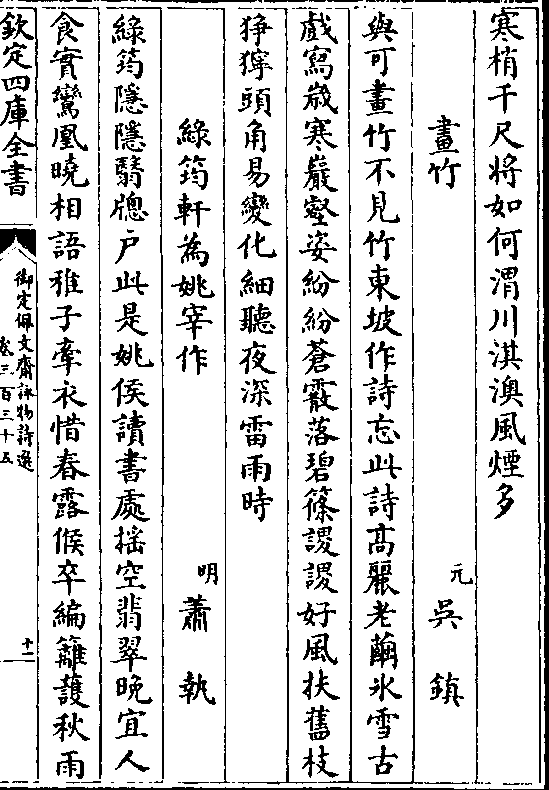 寒梢千尺將如何渭川淇澳風煙多
畫竹
元 吳鎮
與可畫竹不見竹東坡作詩忘此詩髙麗老繭氷雪古
戯寫嵗寒巖壑姿紛紛蒼霰落碧篠謖謖好風扶舊枝
猙獰頭角易變化細聽夜深雷雨時
綠筠軒為姚宰作
明 蕭執
綠筠隱隱翳牕户此是姚侯讀書處揺空翡翠晩宜人
食實鸞凰曉相語稚子牽衣惜春露候卒編籬護秋雨
欽定四庫全書
御定佩文齋詠物詩選
卷三百三十五
十一